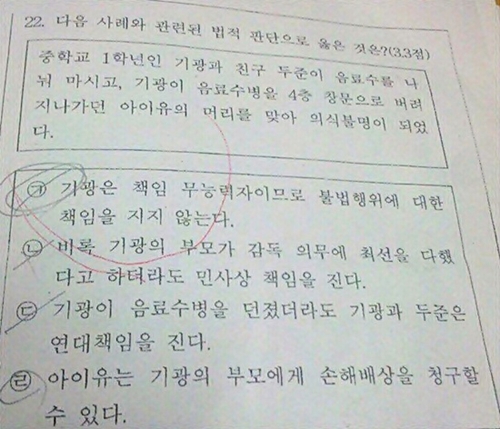 22. 다음 사례와 관련된 법적 판단으로 옳은 것은?(3.3점)
중학교 1학년인 기광과 친구 두준이 음료수를 나
눠 마시고, 기광이 음료수병을 4층 창문으로 버려
지나가던 아이유의 머리를 맞아 의식불명이 되었
다.
㉠ 기광은 책임 무능력자이므로 불법행위에 대한
책임을 지지 않는다.
㉡ 비록 기광의 부모가 감독 의무에 최선을 다했
다고 하더라도 민사상 책임을 진다.
㉢ 기광이 음료수병을 던졌더라도 기광과 두준은
연대책임을 진다.
㉣ 아이유는 기광의 부모에게 손해배상을 청구할
수 있다.